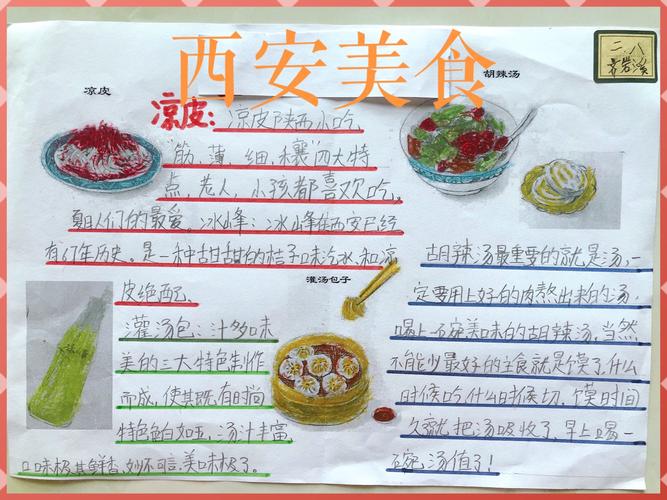 西安美食
二.八
凉皮
胡辣汤
凉皮：凉皮陕西小吃，
"筋、薄、细、穰"四大特
点，老人，小孩都喜欢吃，
夏日人们的最爱。冰峰：冰峰在西安已经
有几年历史。是一种甜甜的桔子味汽水，和凉
皮绝配。
灌汤包子
灌汤包：汁多味
美的三大特色制作
而成，使其既有时尚
特色色白如玉，汤汁丰富，
口味极其鲜香，妙不可言，美味极了。
胡辣汤最重要的就是汤，一
定要用上好的肉熬出来的汤，
喝上一碗美味的胡辣汤，当然
不能少最好的主食就是馍了，什么
时候吃，什么时候切，馍时间
久就把汤吸收了，早上喝一
碗汤值了！